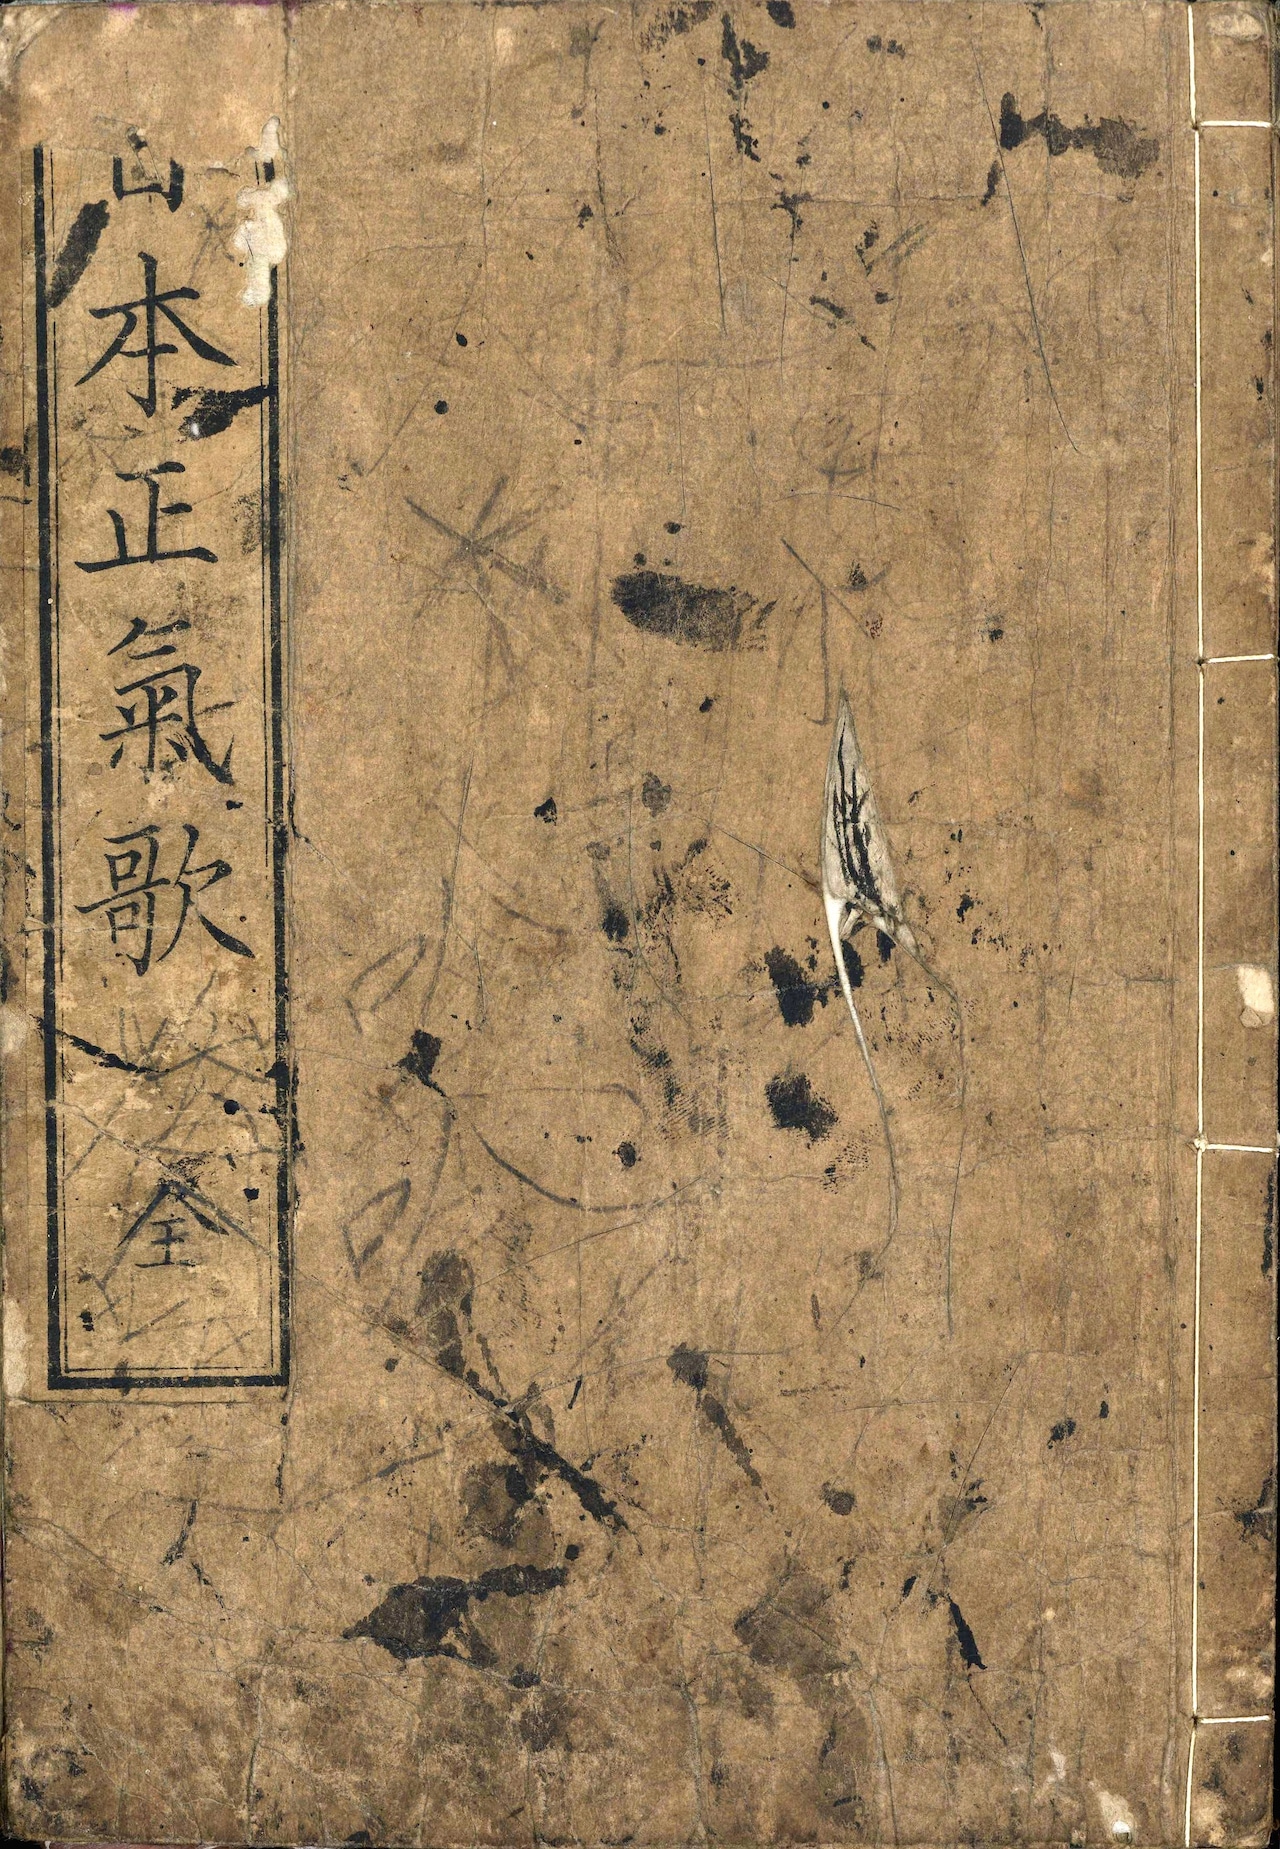 本正氣歌 全